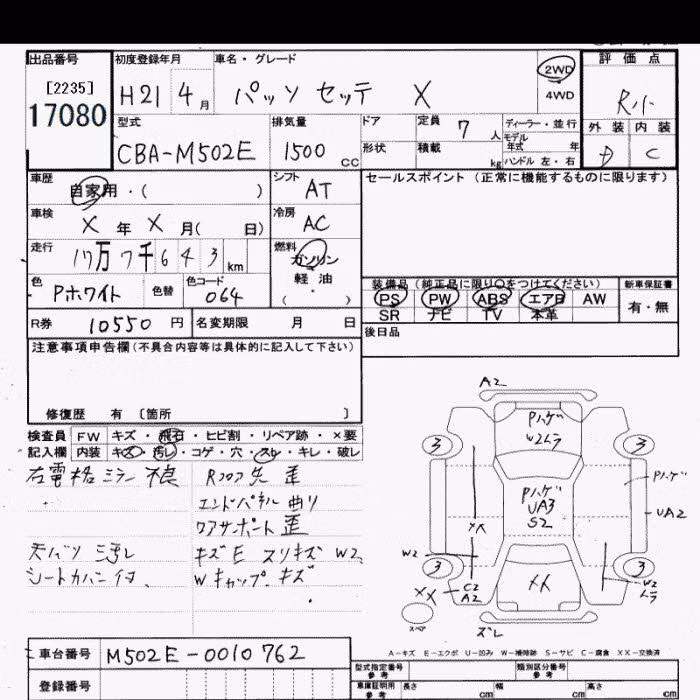 出品番号 初度登録年月 車名・グレード 評価点
[2235]
17080
H21 4月 パッソ セッテ X 2WD R小
4WD
型式 排気量 ドア 定員 7人 ディーラー・並行 外装 内装
CBA-M502E 1500cc 形状 積載 kg モデル年式 年 D C
ハンドル 左・右
車歴 シフト セールスポイント(正常に機能するものに限ります)
自家用・( ) AT
車検 冷房
X年X月( 日) AC
走行 燃料
17万7千643km ガソリン
軽油
色 色替 色コード ( ・ )
Pホワイト 064
装備品(純正品に限り○をつけてください) 新車保証書
PS PW ABS エアB AW 有・無
SR ナビ TV 本革
R券 10550円 名変期限 月 日
後日品
注意事項申告欄(不具合内容等は具体的に記入して下さい)
修復歴 有 〔箇所 〕
検査員 FW キズ・飛石・ヒビ割・リペア跡・×要
記入欄 内装 キズ・汚レ・コゲ・穴・スレ・キレ・破レ
右電格ミラー不良 Rフロア先 歪
エンドパネル 曲り
リアサポート 歪
天バリ 汚レ キズE スリキズ W2
シートカバー付、 Wキャップ キズ
A2
Pハゲ
W2ムラ
3 3
Pハゲ
UA3
S2
Pハゲ
UA2
XX
W2
3 3
XX
C2
A2
XX
W2
ムラ
スペア
ズレ
A-キズ E-エクボ U-凹み W-補修跡 S-サビ C-腐食 XX-交換済
車台番号 M502E-0010762
登録番号
型式指定番号 参考 類別区分番号 参考
車庫証明用 参考 長さ cm 幅 cm 高さ cm